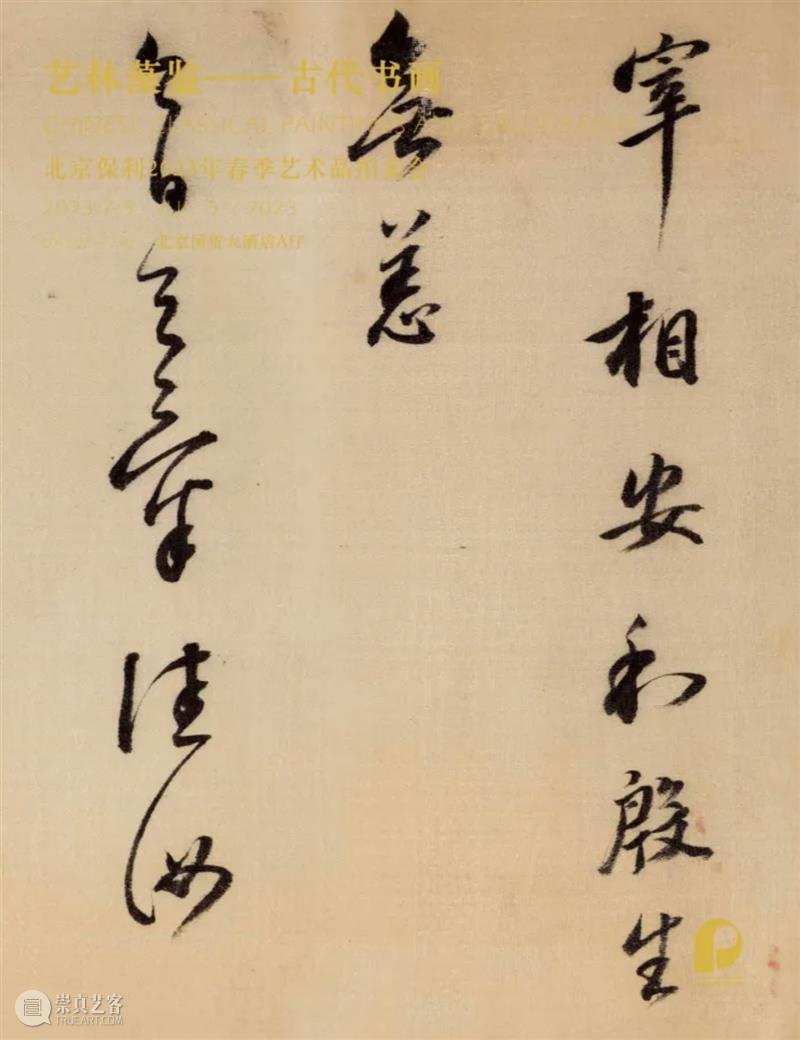 艺林藻鉴——古代书画
CHINESE CLASSICAL PAINTINGS
北京保利2023年春季艺术品拍卖会
北京国贸大酒店A厅
宰相安和殷生
無恙
今日天氣佳
崇真艺客
TRUEART.COM